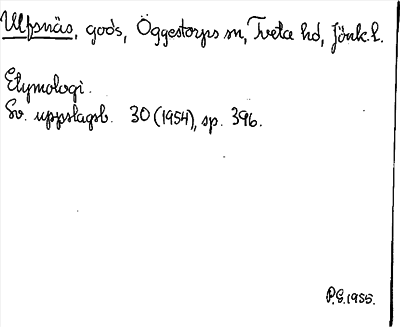 Ulfsnäs, gods, Öggestorps sn, Tveta hd, Jönk.l.
Etymologi.
Sv. uppslagsb. 30 (1954), sp. 396.
P.G.1955.